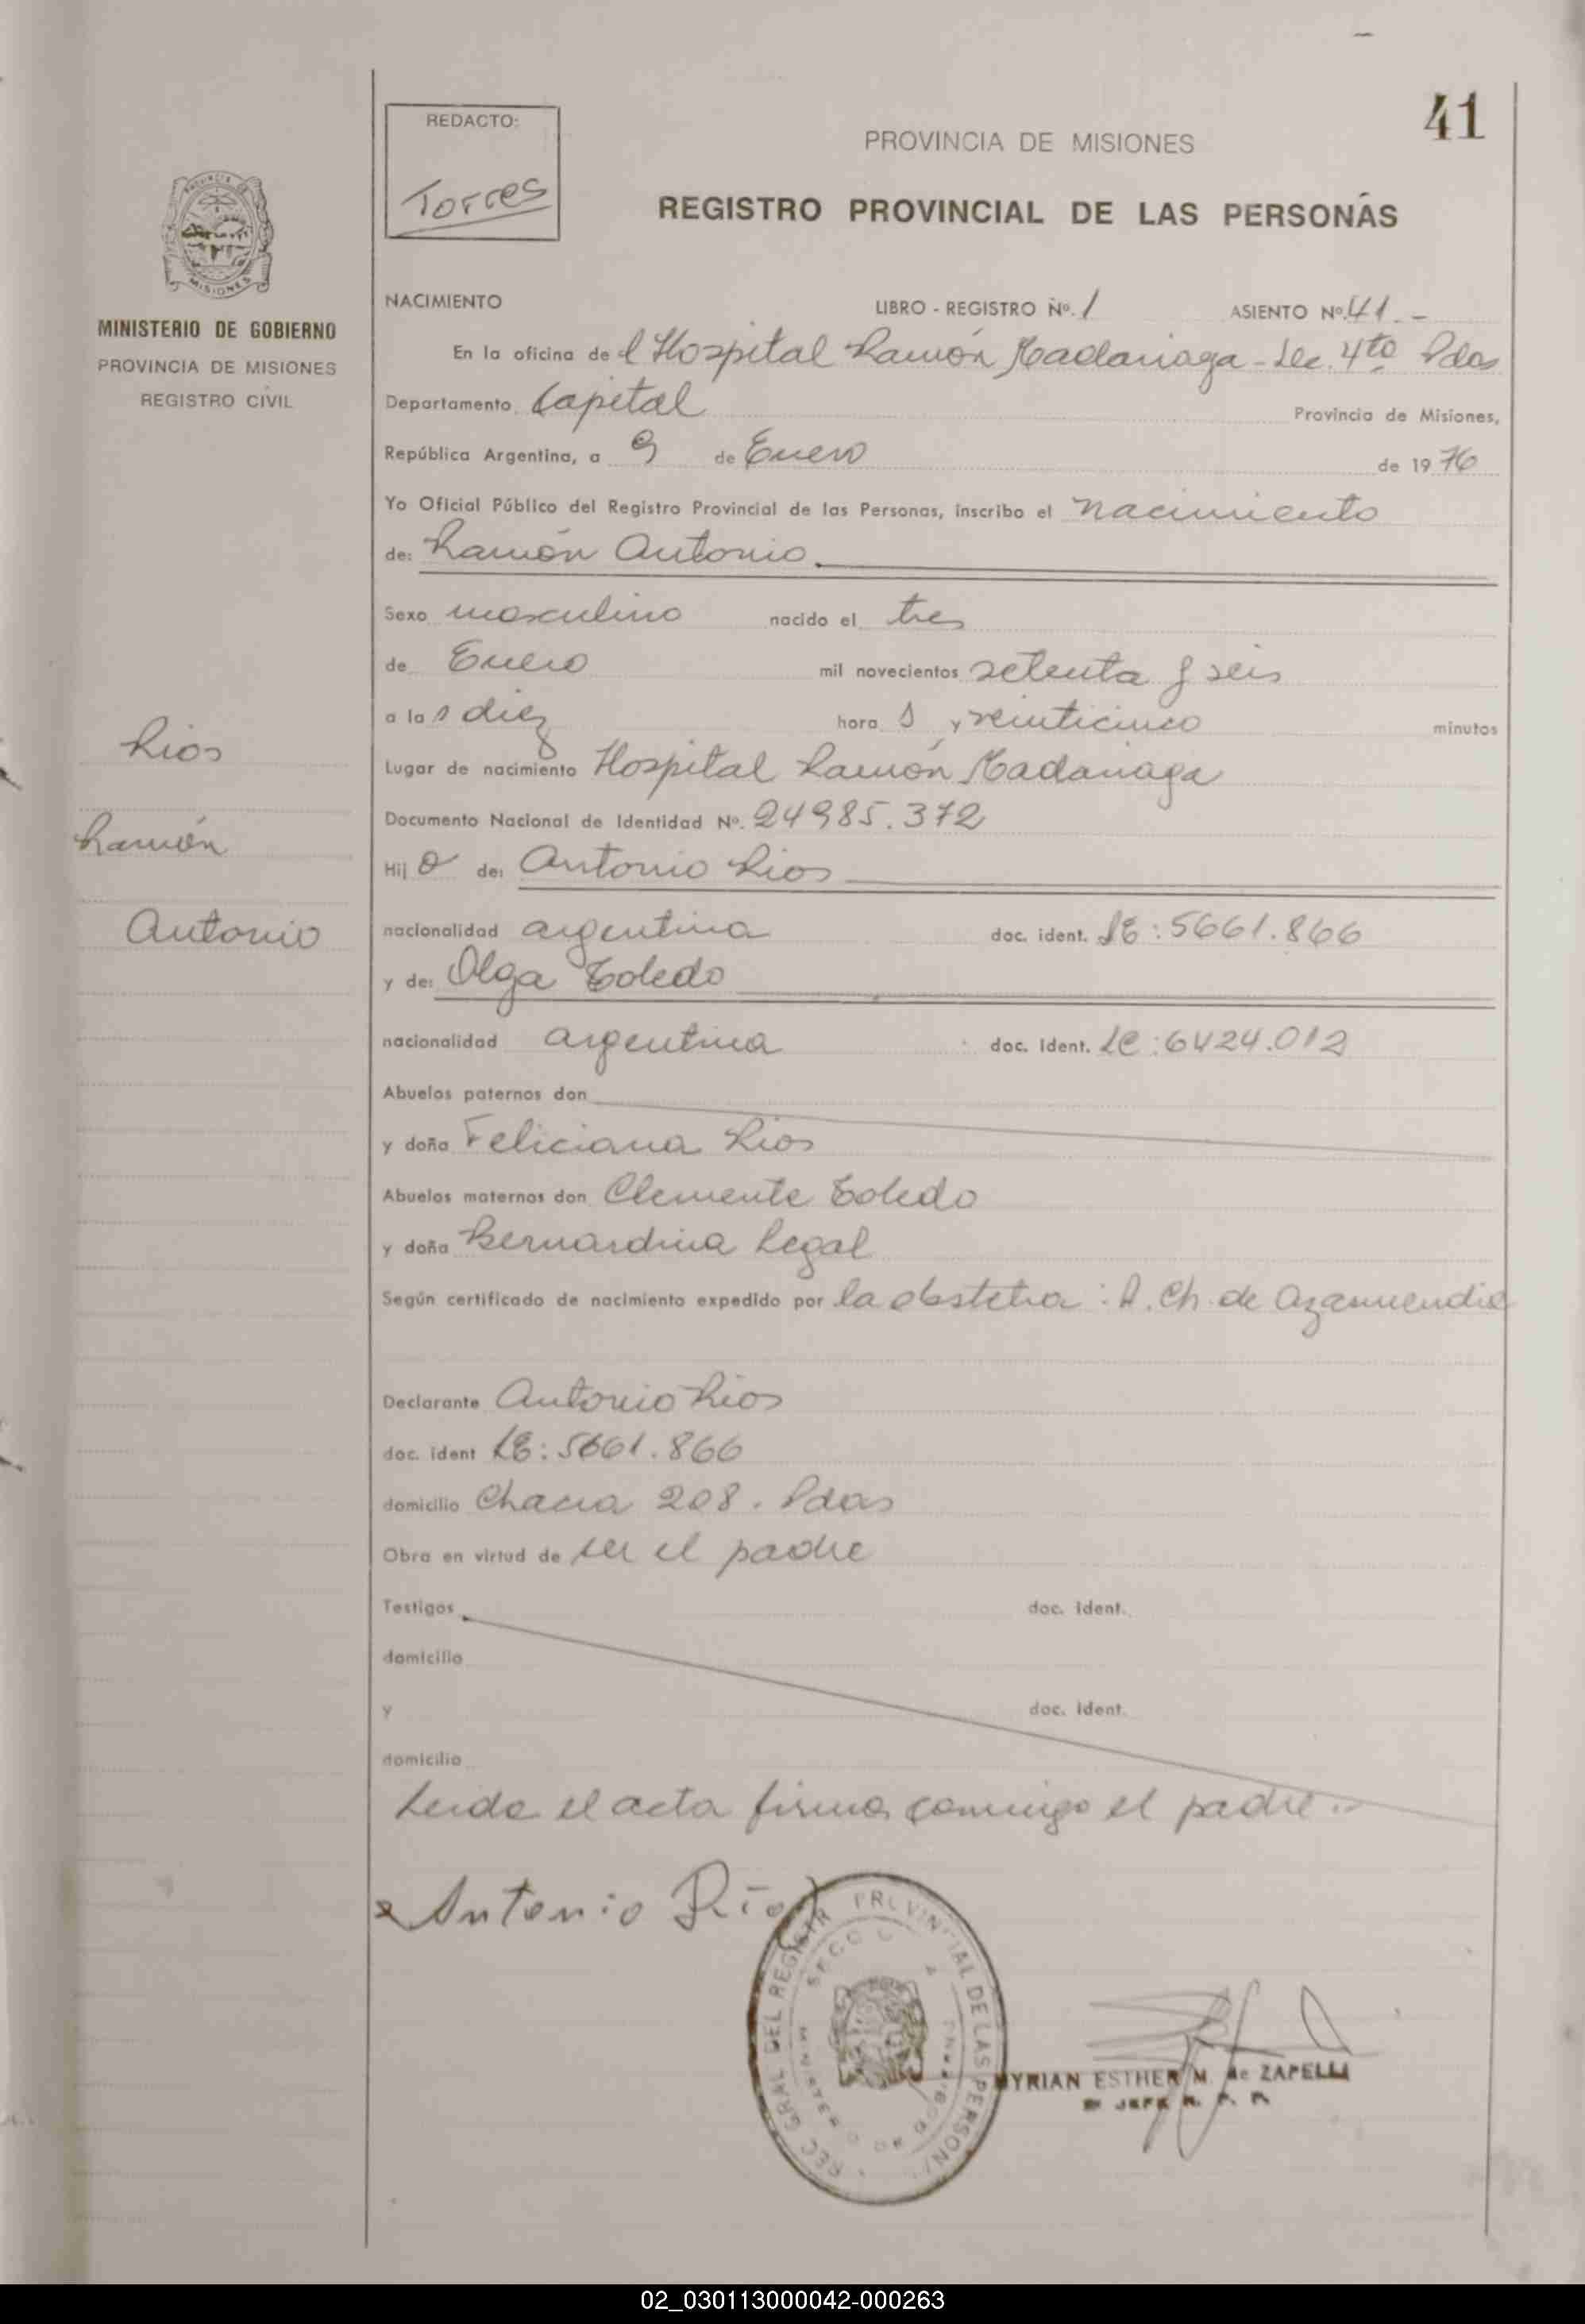 41
REDACTO:
Torres
PROVINCIA DE MISIONES
REGISTRO PROVINCIAL DE LAS PERSONAS
PROVINCIA DE
MISIONES
MINISTERIO DE GOBIERNO
PROVINCIA DE MISIONES
REGISTRO CIVIL
NACIMIENTO LIBRO - REGISTRO Nº. 1 ASIENTO Nº. 41.-
En la oficina de l Hospital Ramón Madariaga - Sec. 4ta Pdas
Departamento Capital Provincia de Misiones,
República Argentina, a 9 de Enero de 1976
Yo Oficial Público del Registro Provincial de las Personas, inscribo el nacimiento
de: Ramón Antonio
Sexo masculino nacido el tres
de Enero mil novecientos setenta y seis
a las diez hora s y veinticinco minutos
Lugar de nacimiento Hospital Ramón Madariaga
Documento Nacional de Identidad Nº. 24985.372
Hijo de: Antonio Rios
Rios
Ramón
Antonio
nacionalidad argentina doc. ident. LE: 5661.866
y de: Olga Toledo
nacionalidad argentina doc. ident. LC: 6424.012
Abuelos paternos don
y doña Feliciana Rios
Abuelos maternos don Clemente Toledo
y doña Bernardina Legal
Según certificado de nacimiento expedido por la obstetra: A. Ch. de
Declarante Antonio Rios
doc. ident LE: 5661.866
domicilio Chacra 208. Pdas
Obra en virtud de ser el padre
Testigos doc. ident.
domicilio
y doc. ident.
domicilio
Leida el acta firma conmigo el padre.-
Antonio Ríos
PROVINCIAL DE LAS
GRAL DEL
MYRIAN ESTHER M. de ZAPELLI
JEFE R. P. P.
02_030113000042-000263